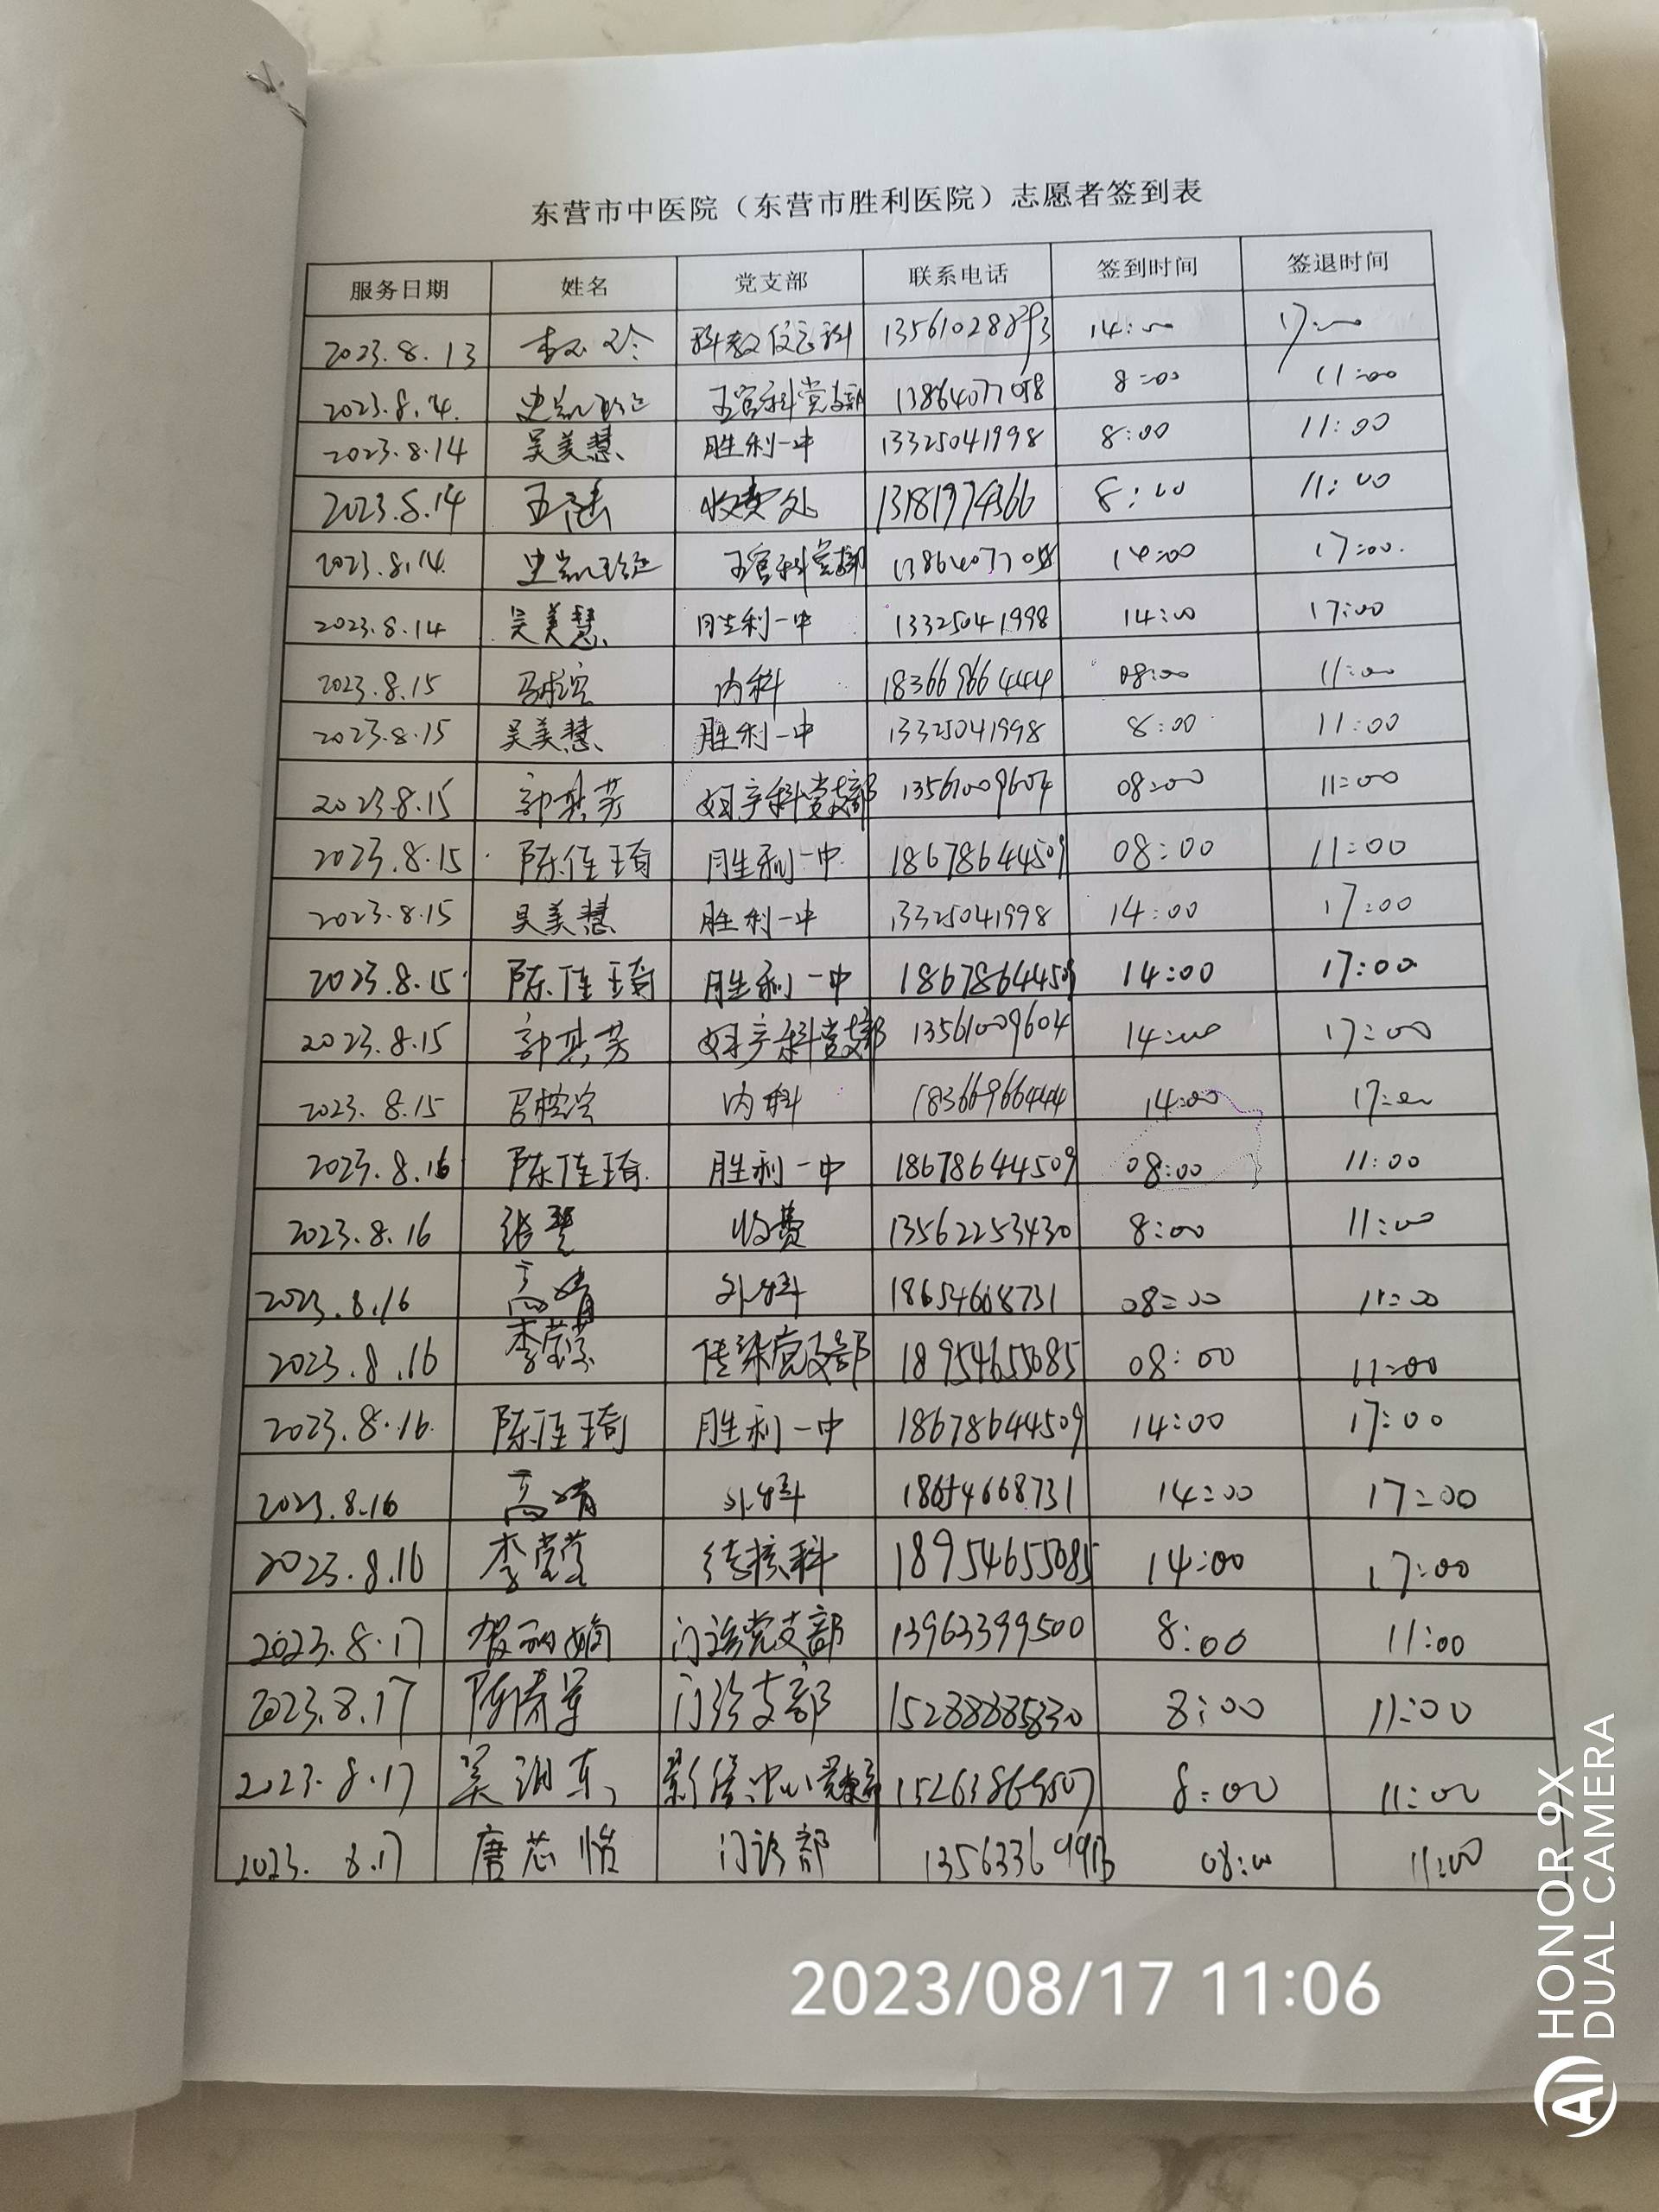 东营市中医院（东营市胜利医院）志愿者签到表
服务日期 姓名 党支部 联系电话 签到时间 签退时间
2023.8.13 14:00 17:00
2023.8.14. 五官科党支部 8:00 11:00
2023.8.14 吴美慧 胜利一中 13325041998 8:00 11:00
2023.8.14 收费处 13181974366 8:00 11:00
2023.8.14. 五官科党支部 14:00 17:00.
2023.8.14 吴美慧 胜利一中 13325041998 14:00 17:00
2023.8.15 内科 18366966444 08:00 11:00
2023.8.15 吴美慧 胜利一中 13325041998 8:00 11:00
2023.8.15 郭其芳 妇产科党支部 13561009604 08:00 11:00
2023.8.15 陈佳琦 胜利一中 18678644509 08:00 11:00
2023.8.15 吴美慧 胜利一中 13325041998 14:00 17:00
2023.8.15 陈佳琦 胜利一中 18678644509 14:00 17:00
2023.8.15 郭其芳 妇产科党支部 13561009604 14:00 17:00
2023.8.15 内科 18366966444 14:00 17:00
2023.8.16 陈佳琦 胜利一中 18678644509 08:00 11:00
2023.8.16 收费 13562253430 8:00 11:00
2023.8.16 高婧 外科 18654668731 08:00 11:00
2023.8.16 18954655085 08:00 11:00
2023.8.16. 陈佳琦 胜利一中 18678644509 14:00 17:00
2023.8.16 高婧 外科 18654668731 14:00 17:00
2023.8.16 李莹莹 结核科 18954655085 14:00 17:00
2023.8.17 门诊党支部 13963399500 8:00 11:00
2023.8.17 门诊支部 8:00 11:00
2023.8.17 影像中心党支部 8:00 11:00
2023.8.17 唐芯怡 门诊部 08:00 11:00
2023/08/17 11:06
HONOR 9X
DUAL CAMERA
AI